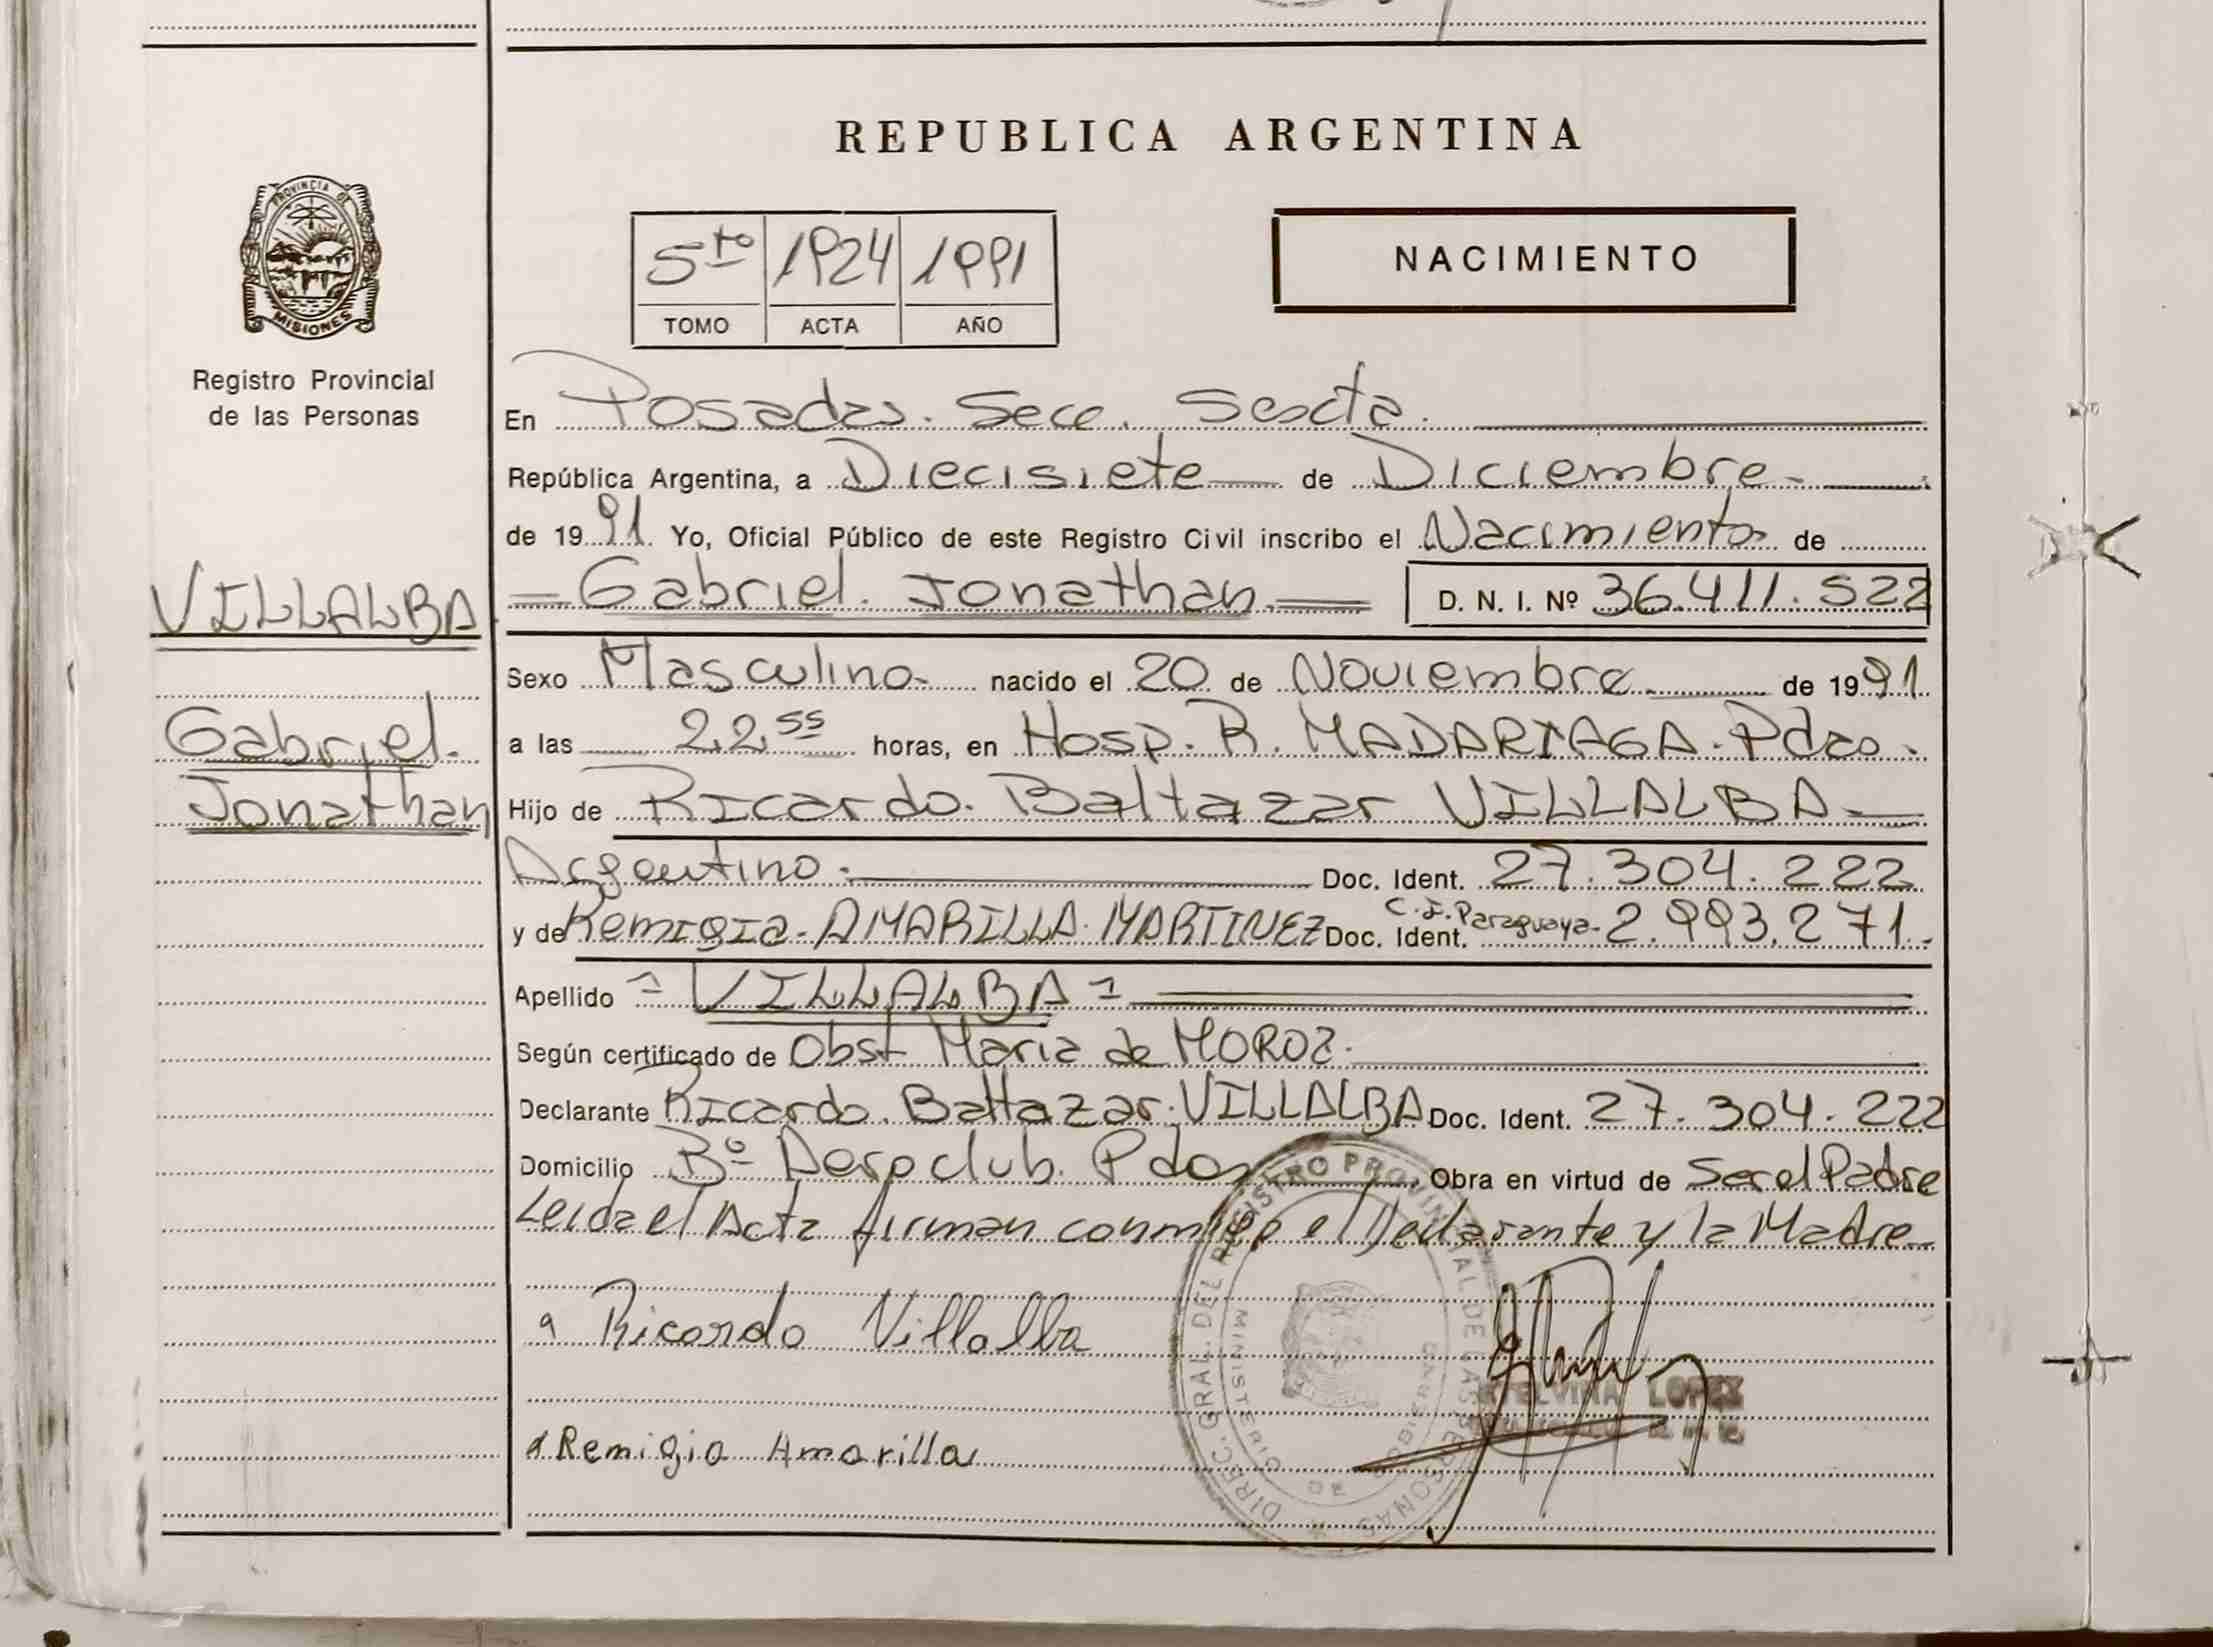 REPUBLICA ARGENTINA
PROVINCIA DE
MISIONES
Registro Provincial
de las Personas
5to 1924 1991
TOMO ACTA AÑO
NACIMIENTO
En Posadas. Secc. Sexta.
República Argentina, a Diecisiete de Diciembre
de 1991. Yo, Oficial Público de este Registro Civil inscribo el Nacimiento de
VILLALBA
Gabriel.
Jonathan
Gabriel. Jonathan D. N. I. Nº 36.411.522
Sexo Masculino nacido el 20 de Noviembre de 1991.
a las 22.55 horas, en Hosp. R. MADARIAGA. Pdas.
Hijo de Ricardo. Baltazar VILLALBA
Argentino. Doc. Ident. 27.304.222
y de Remigia. AMARILLA. MARTINEZ Doc. Ident. C.I. Paraguaya. 2.993.271.
Apellido = VILLALBA =
Según certificado de Obst Maria de MOROZ.
Declarante Ricardo. Baltazar. VILLALBA Doc. Ident. 27.304.222
Domicilio Bº Aeroclub. Pdas Obra en virtud de Ser el Padre
Leida el Acta firman conmigo el Declarante y la Madre
Ricardo Villalba
Remigia Amarilla
DIREC. GRAL. DEL REGISTRO PROVINCIAL DE LAS PERSONAS
MINISTERIO DE GOBIERNO
LOPEZ